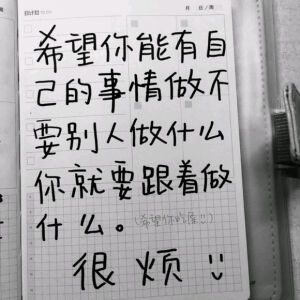 日计划
月 日/周
希望你能有自
己的事情做不
要别人做什么
你就要跟着做
什么。
很烦